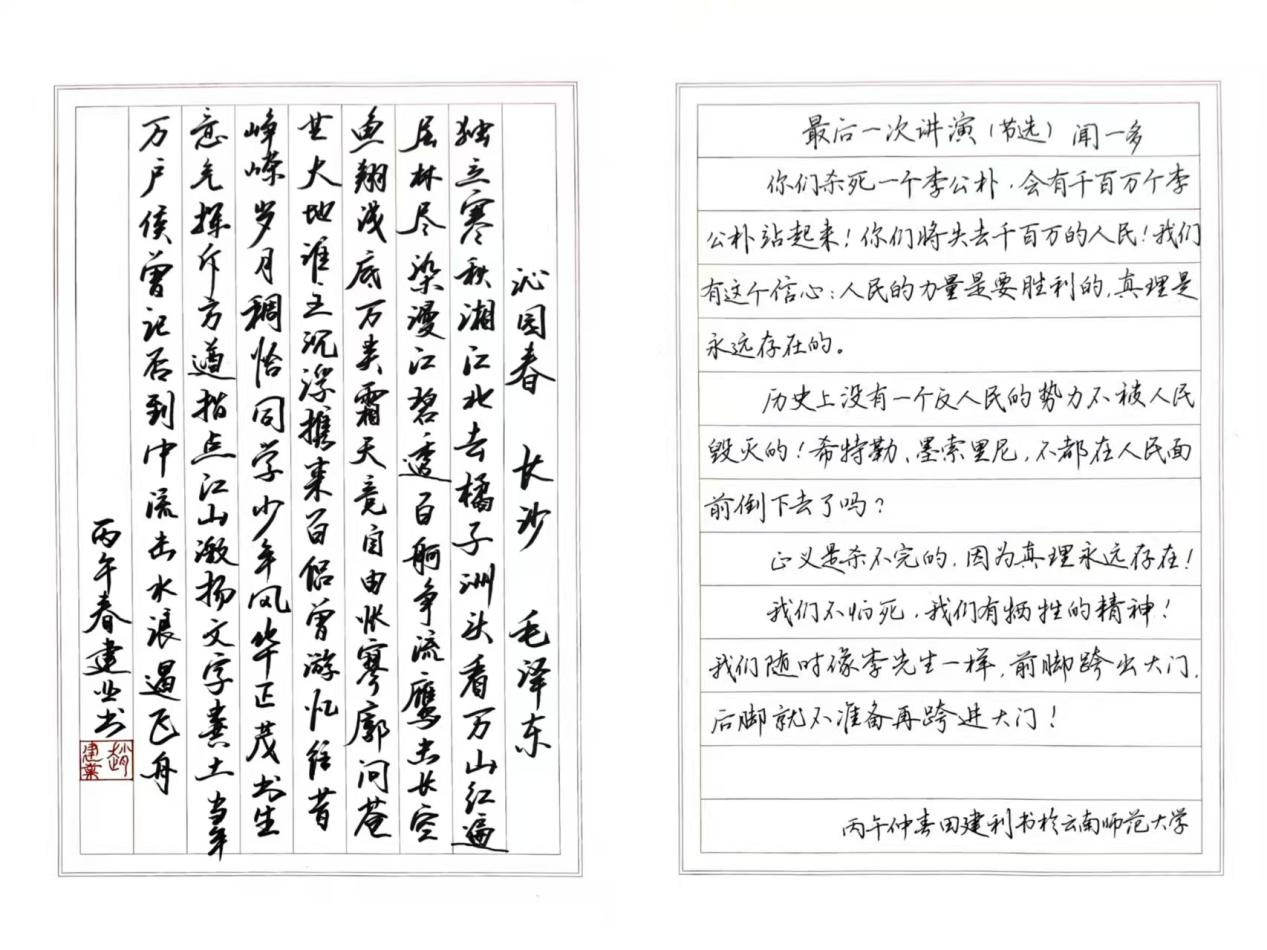 沁园春 长沙 毛泽东
独立寒秋湘江北去橘子洲头看万山红遍
层林尽染漫江碧透百舸争流鹰击长空
鱼翔浅底万类霜天竞自由怅寥廓问苍
茫大地谁主沉浮携来百侣曾游忆往昔
峥嵘岁月稠恰同学少年风华正茂书生
意气挥斥方遒指点江山激扬文字粪土当年
万户侯曾记否到中流击水浪遏飞舟
丙午春建业书
趙建業
最后一次讲演(节选) 闻一多
你们杀死一个李公朴，会有千百万个李
公朴站起来！你们将失去千百万的人民！我们
有这个信心：人民的力量是要胜利的，真理是
永远存在的。
历史上没有一个反人民的势力不被人民
毁灭的！希特勒、墨索里尼，不都在人民面
前倒下去了吗？
正义是杀不完的，因为真理永远存在！
我们不怕死，我们有牺牲的精神！
我们随时像李先生一样，前脚跨出大门，
后脚就不准备再跨进大门！
丙午仲春田建利书於云南师范大学